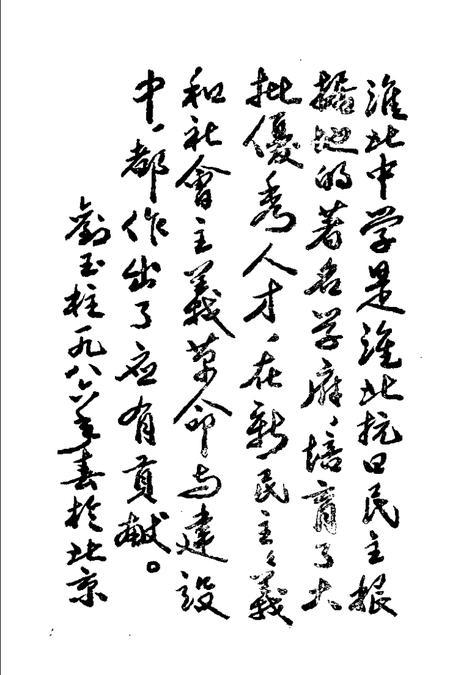 淮北中学是淮北抗日民主根
据地的著名学府，培育了大
批優秀人才，在新民主主義
和社會主義革命与建設
中，都作出了应有貢献。
劉玉柱一九八六年春於北京